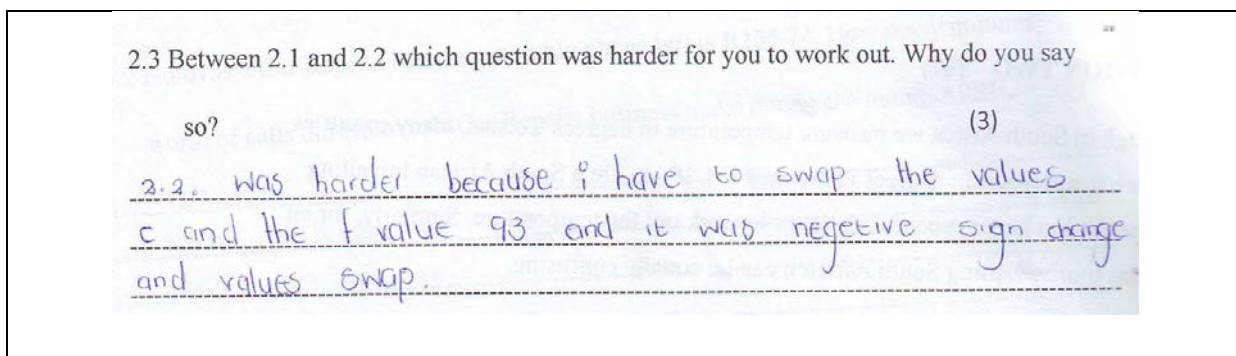 2.3 Between 2.1 and 2.2 which question was harder for you to work out. Why do you say
so? (3)
2.2. was harder because i have to swap the values
c and the f value 93 and it was negetive sign change
and values swap.